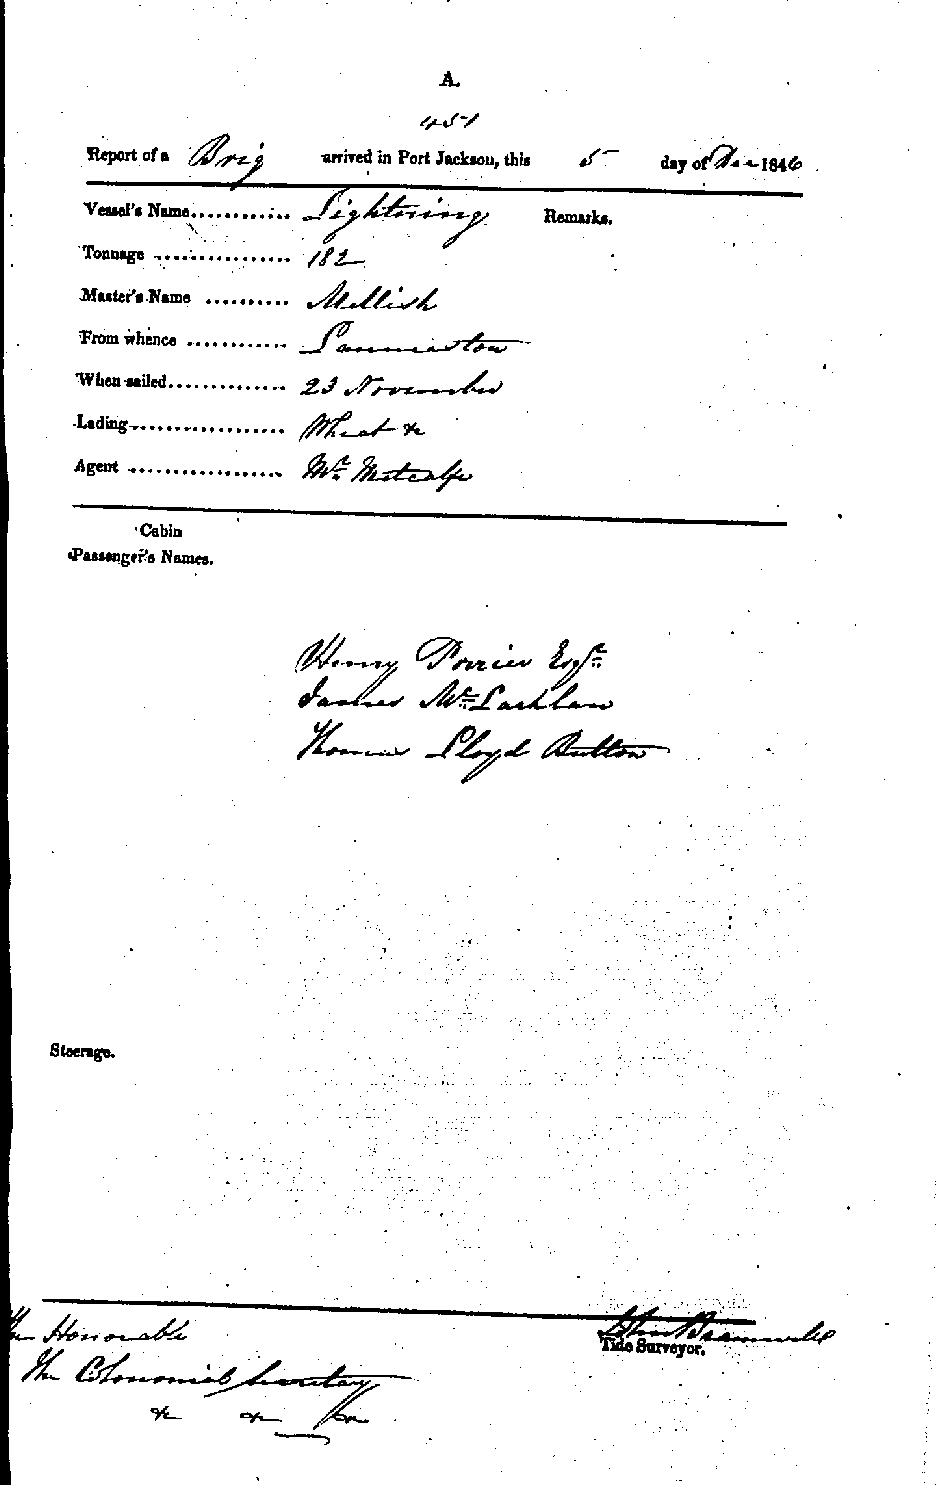 A.
451
Report of a Brig arrived in Port Jackson, this 5 day of Dec 1846
Vessel's Name............ Lightning Remarks.
Tonnage ................ 182
Master's Name .......... Mellish
From whence ............ Launceston
When sailed.............. 23 November
Lading.................. Wheat &c
Agent .................. Mr. Metcalfe
Cabin
Passenger's Names.
Henry Esqr.
James McLachlan
Thomas Lloyd Button
Steerage.
The Honorable John Bramwell
Tide Surveyor.
The Colonial Secretary
&c &c &c